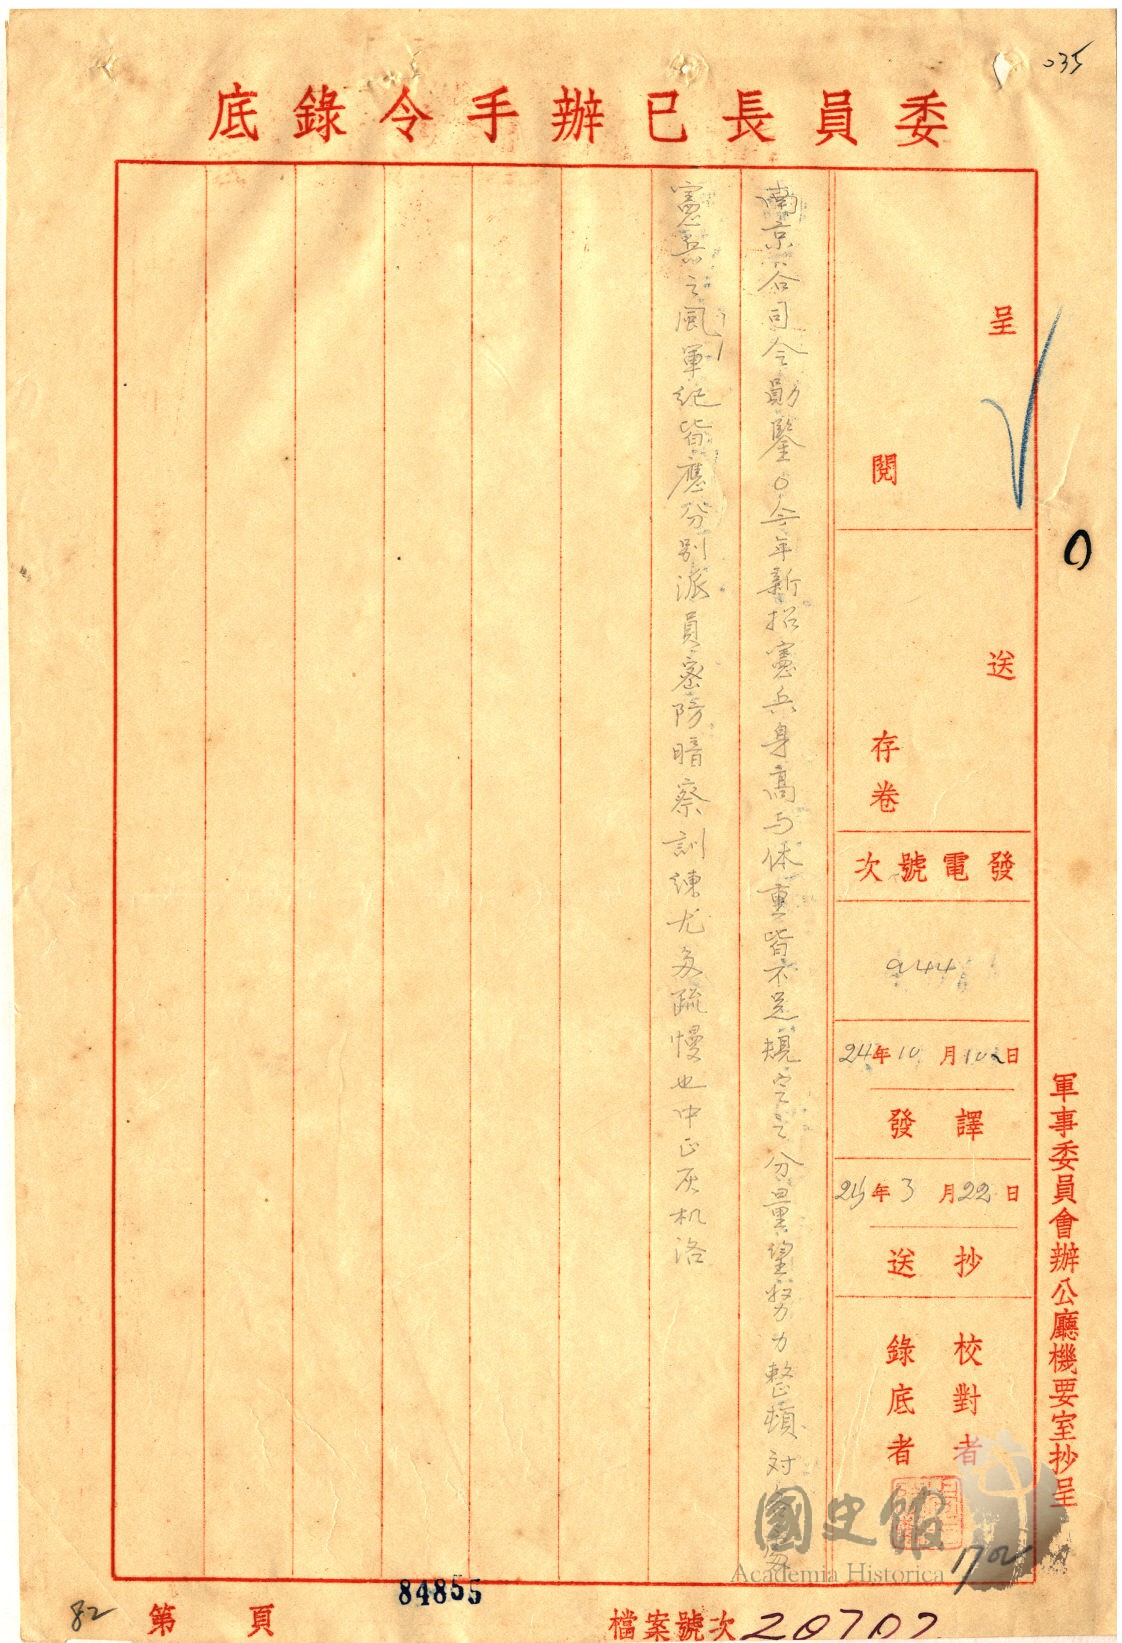 035
委員長已辦手令錄底
呈
閱
送
存卷
發電號次
944
24年10月10日
譯發
25年3月22日
抄送
校對者
錄底者
南京谷司令勛鑒○今年新招憲兵身高与体重皆不足規定之分量望努力整頓対
憲兵之風軍紀皆應分別派員密防暗察訓練尤多疏慢也中正灰机洛
軍事委員會辦公廳機要室抄呈
國史館
Academia Historica
172
84855
82
第 頁
檔案號次 20702